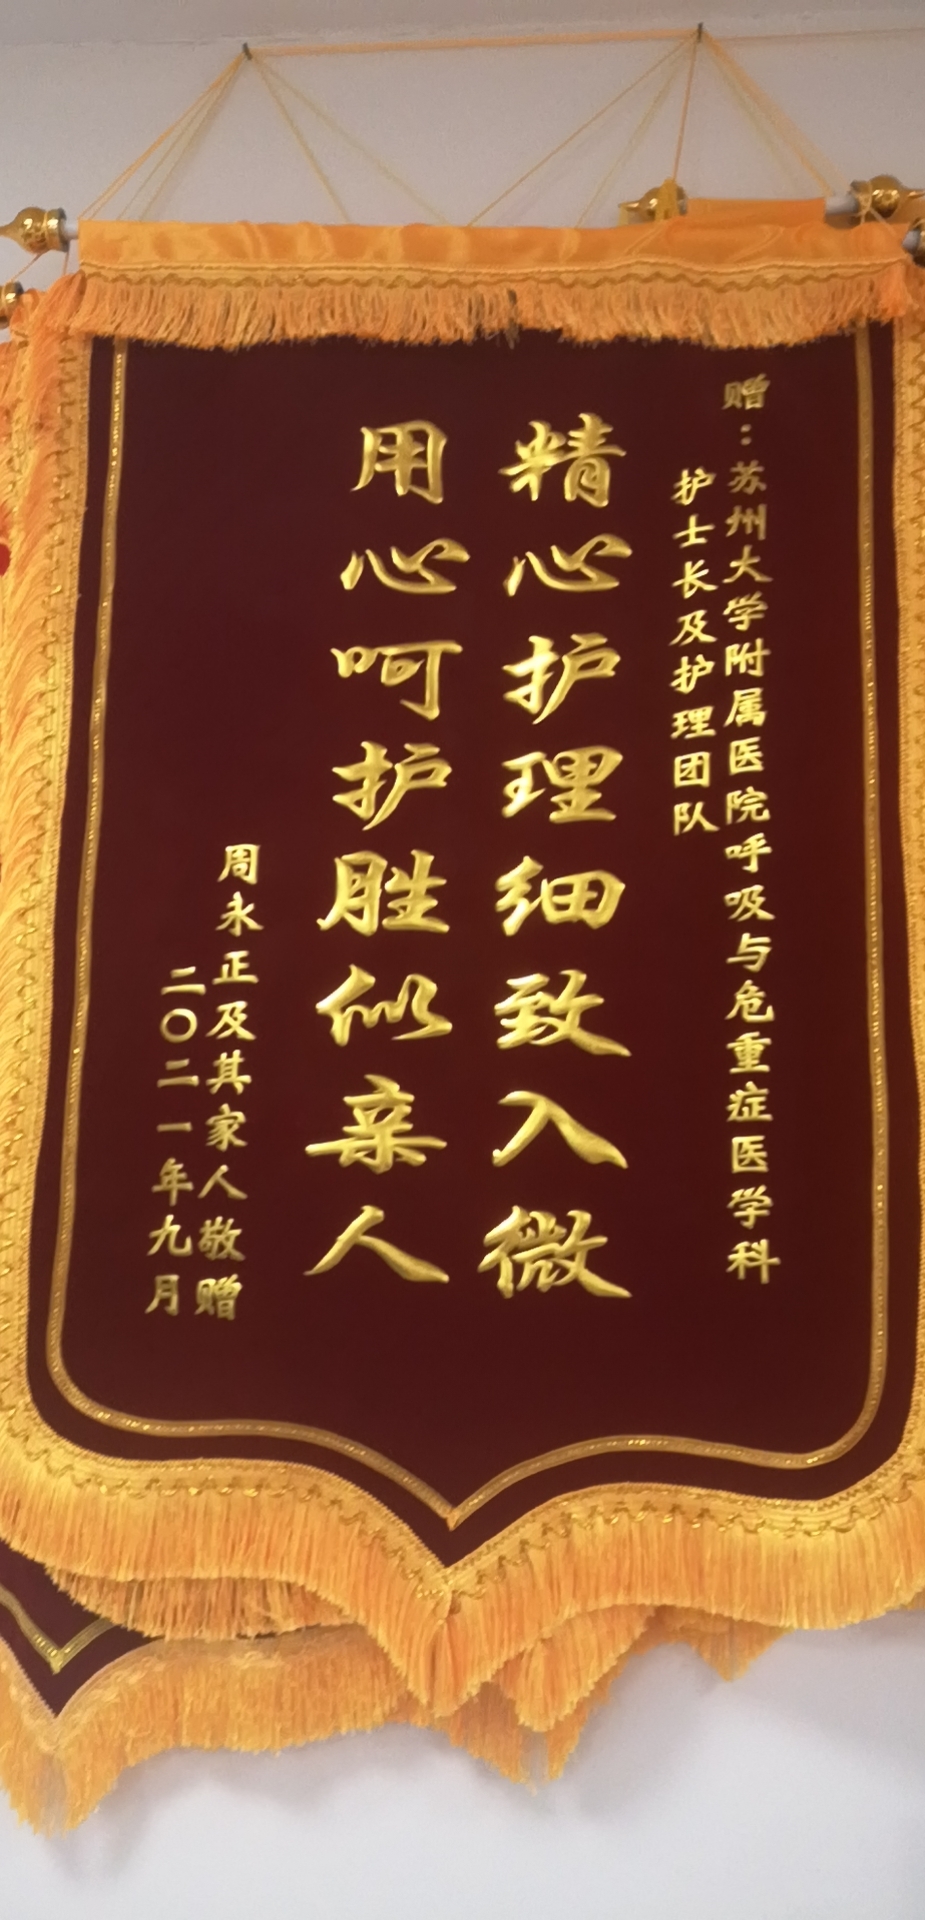 赠：苏州大学附属医院呼吸与危重症医学科
护士长及护理团队
精心护理细致入微
用心呵护胜似亲人
周永正及其家人敬赠
二〇二一年九月